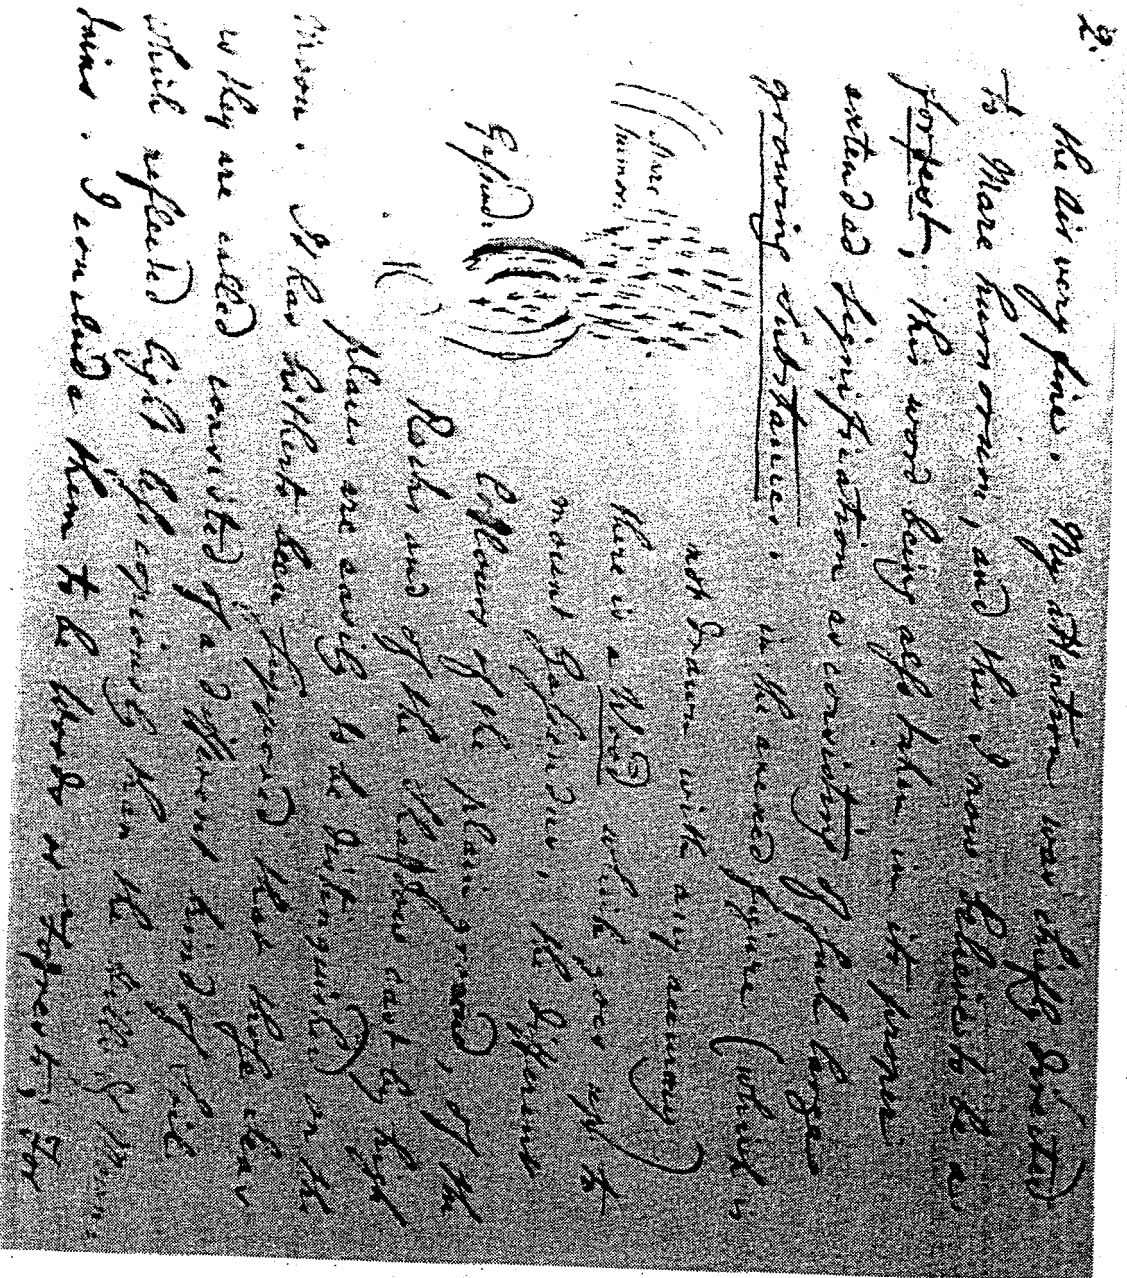 2.
The air very fine. My attention was chiefly directed
to Mare humorum, and this I now believe to be a
forest, this word being also taken in its proper
extended signification as consisting of such large
growing substances. in the annexed figure (which is
not drawn with any accuracy)
there is a Wood which goes up to
mount Gassendus. the different
Collours of the plain ground, of the
Rocks and of the shadows cast by high
places are easily to be distinguished in the
Moon. It has hitherto been supposed that those clear
as they are called consisted of a different kind of soil
which reflected light less copiously than the hills & Moun-
tains. I conclude them to be Woods or Forests, for
Mare
humor.
Gassend.